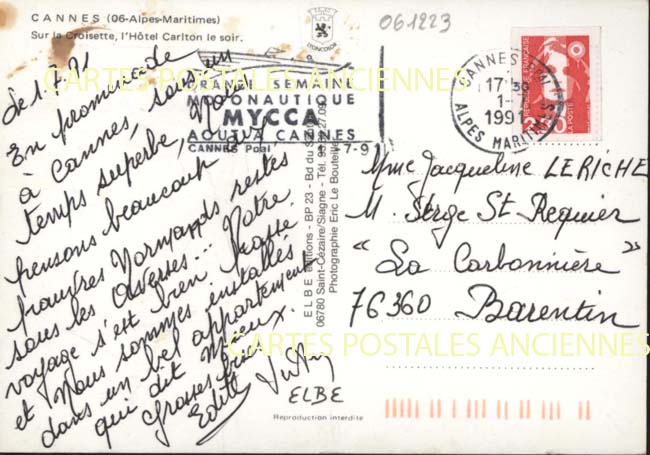 CANNES (06-Alpes-Maritimes)
Sur la Croisette, l'Hôtel Carlton le soir.
061223
Le 1.7.91
En promenade
à Cannes, sous un
temps superbe, Nous
pensons beaucoup aux
pauvres Normands restés
sous les averses... Notre
voyage s'est bien passé
et Nous sommes installés
dans un bel appartement
qui dit mieux.
Grosses bises
Edith
GRANDE SEMAINE
MOTONAUTIQUE
MYCCA
AOUT A CANNES
CANNES Ppal 1-7-91
ELBE éditions - BP 23 - Bd du
06780 Saint-Cézaire/Siagne - Tél. 93.
Photographie Eric Le Bouteiller
CANNES
17H30
1-7
1991
ALPES MARITIMES
REPUBLIQUE FRANÇAISE
LA POSTE
Mme Jacqueline LERICHE
M. Serge St Requier
"La Carbonnière"
76360 Barentin
ELBE
Reproduction interdite
CARTES POSTALES ANCIENNES
CARTES POSTALES ANCIENNES